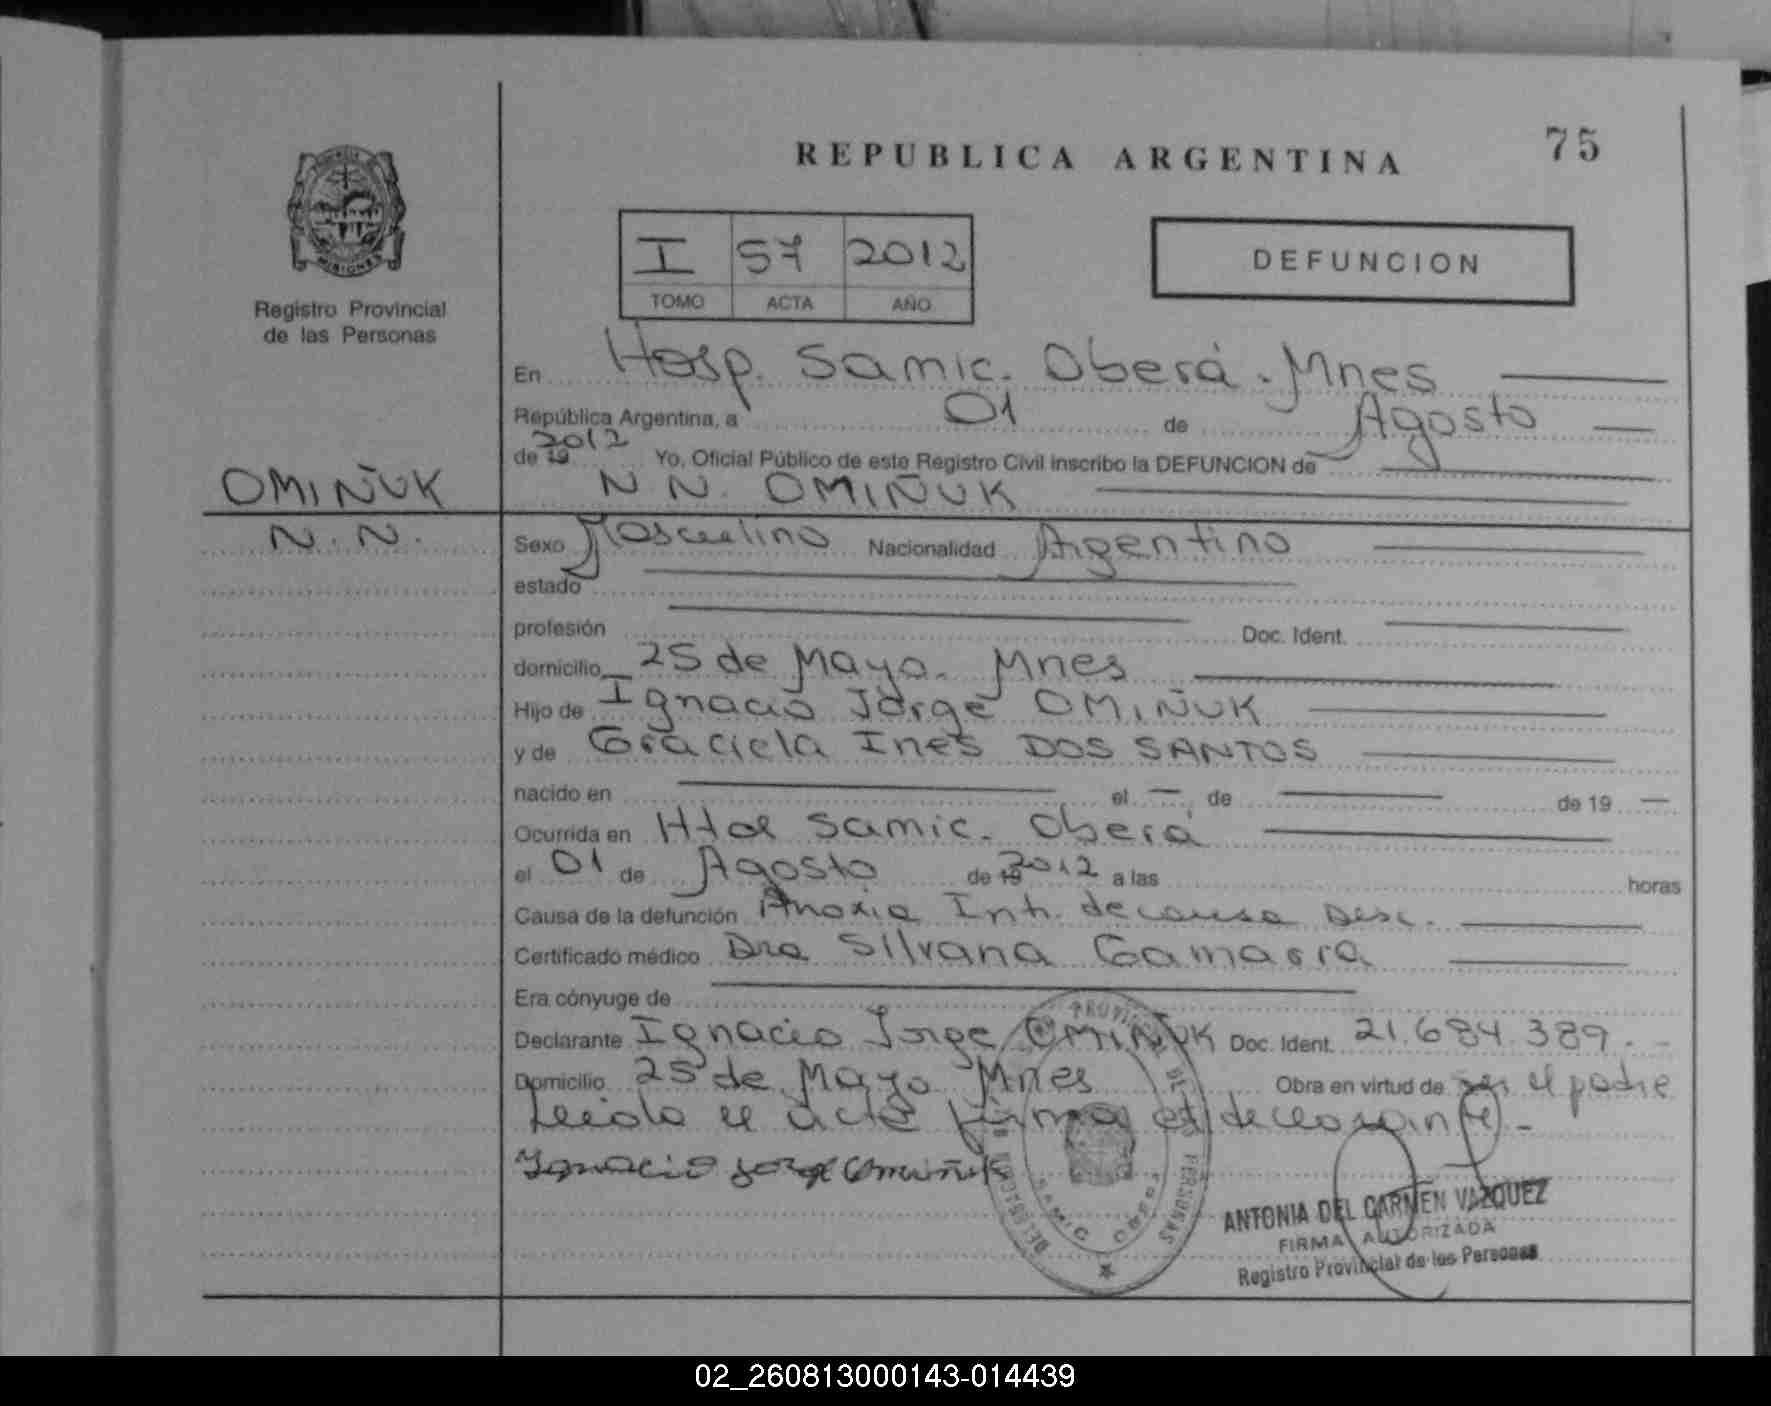 REPUBLICA ARGENTINA
75
MISIONES
Registro Provincial
de las Personas
I 57 2012
TOMO ACTA AÑO
DEFUNCION
En Hosp. Samic. Oberá. Mnes
República Argentina, a 01 de Agosto
de 19 2012 Yo, Oficial Público de este Registro Civil inscribo la DEFUNCION de
OMIÑUK
N N. OMIÑUK
N. N.
Sexo Masculino Nacionalidad Argentino
estado
profesión Doc. Ident.
domicilio 25 de Mayo. Mnes
Hijo de Ignacio Jorge OMIÑUK
y de Graciela Ines DOS SANTOS
nacido en el de de 19
Ocurrida en Htal Samic. Oberá
el 01 de Agosto de 19 2012 a las horas
Causa de la defunción Anoxia Int. de causa Desc.
Certificado médico Dra Silvana Gamarra
Era cónyuge de
Declarante Ignacio Jorge OMIÑUK Doc. Ident. 21.684.389.-
Domicilio 25 de Mayo Mnes Obra en virtud de ser el padre
Leida el acta firma el declarante.-
Ignacio Jorge Omiñuk
SAMIC OBERA
ANTONIA DEL CARMEN VAZQUEZ
FIRMA AUTORIZADA
Registro Provincial de las Personas
02_260813000143-014439